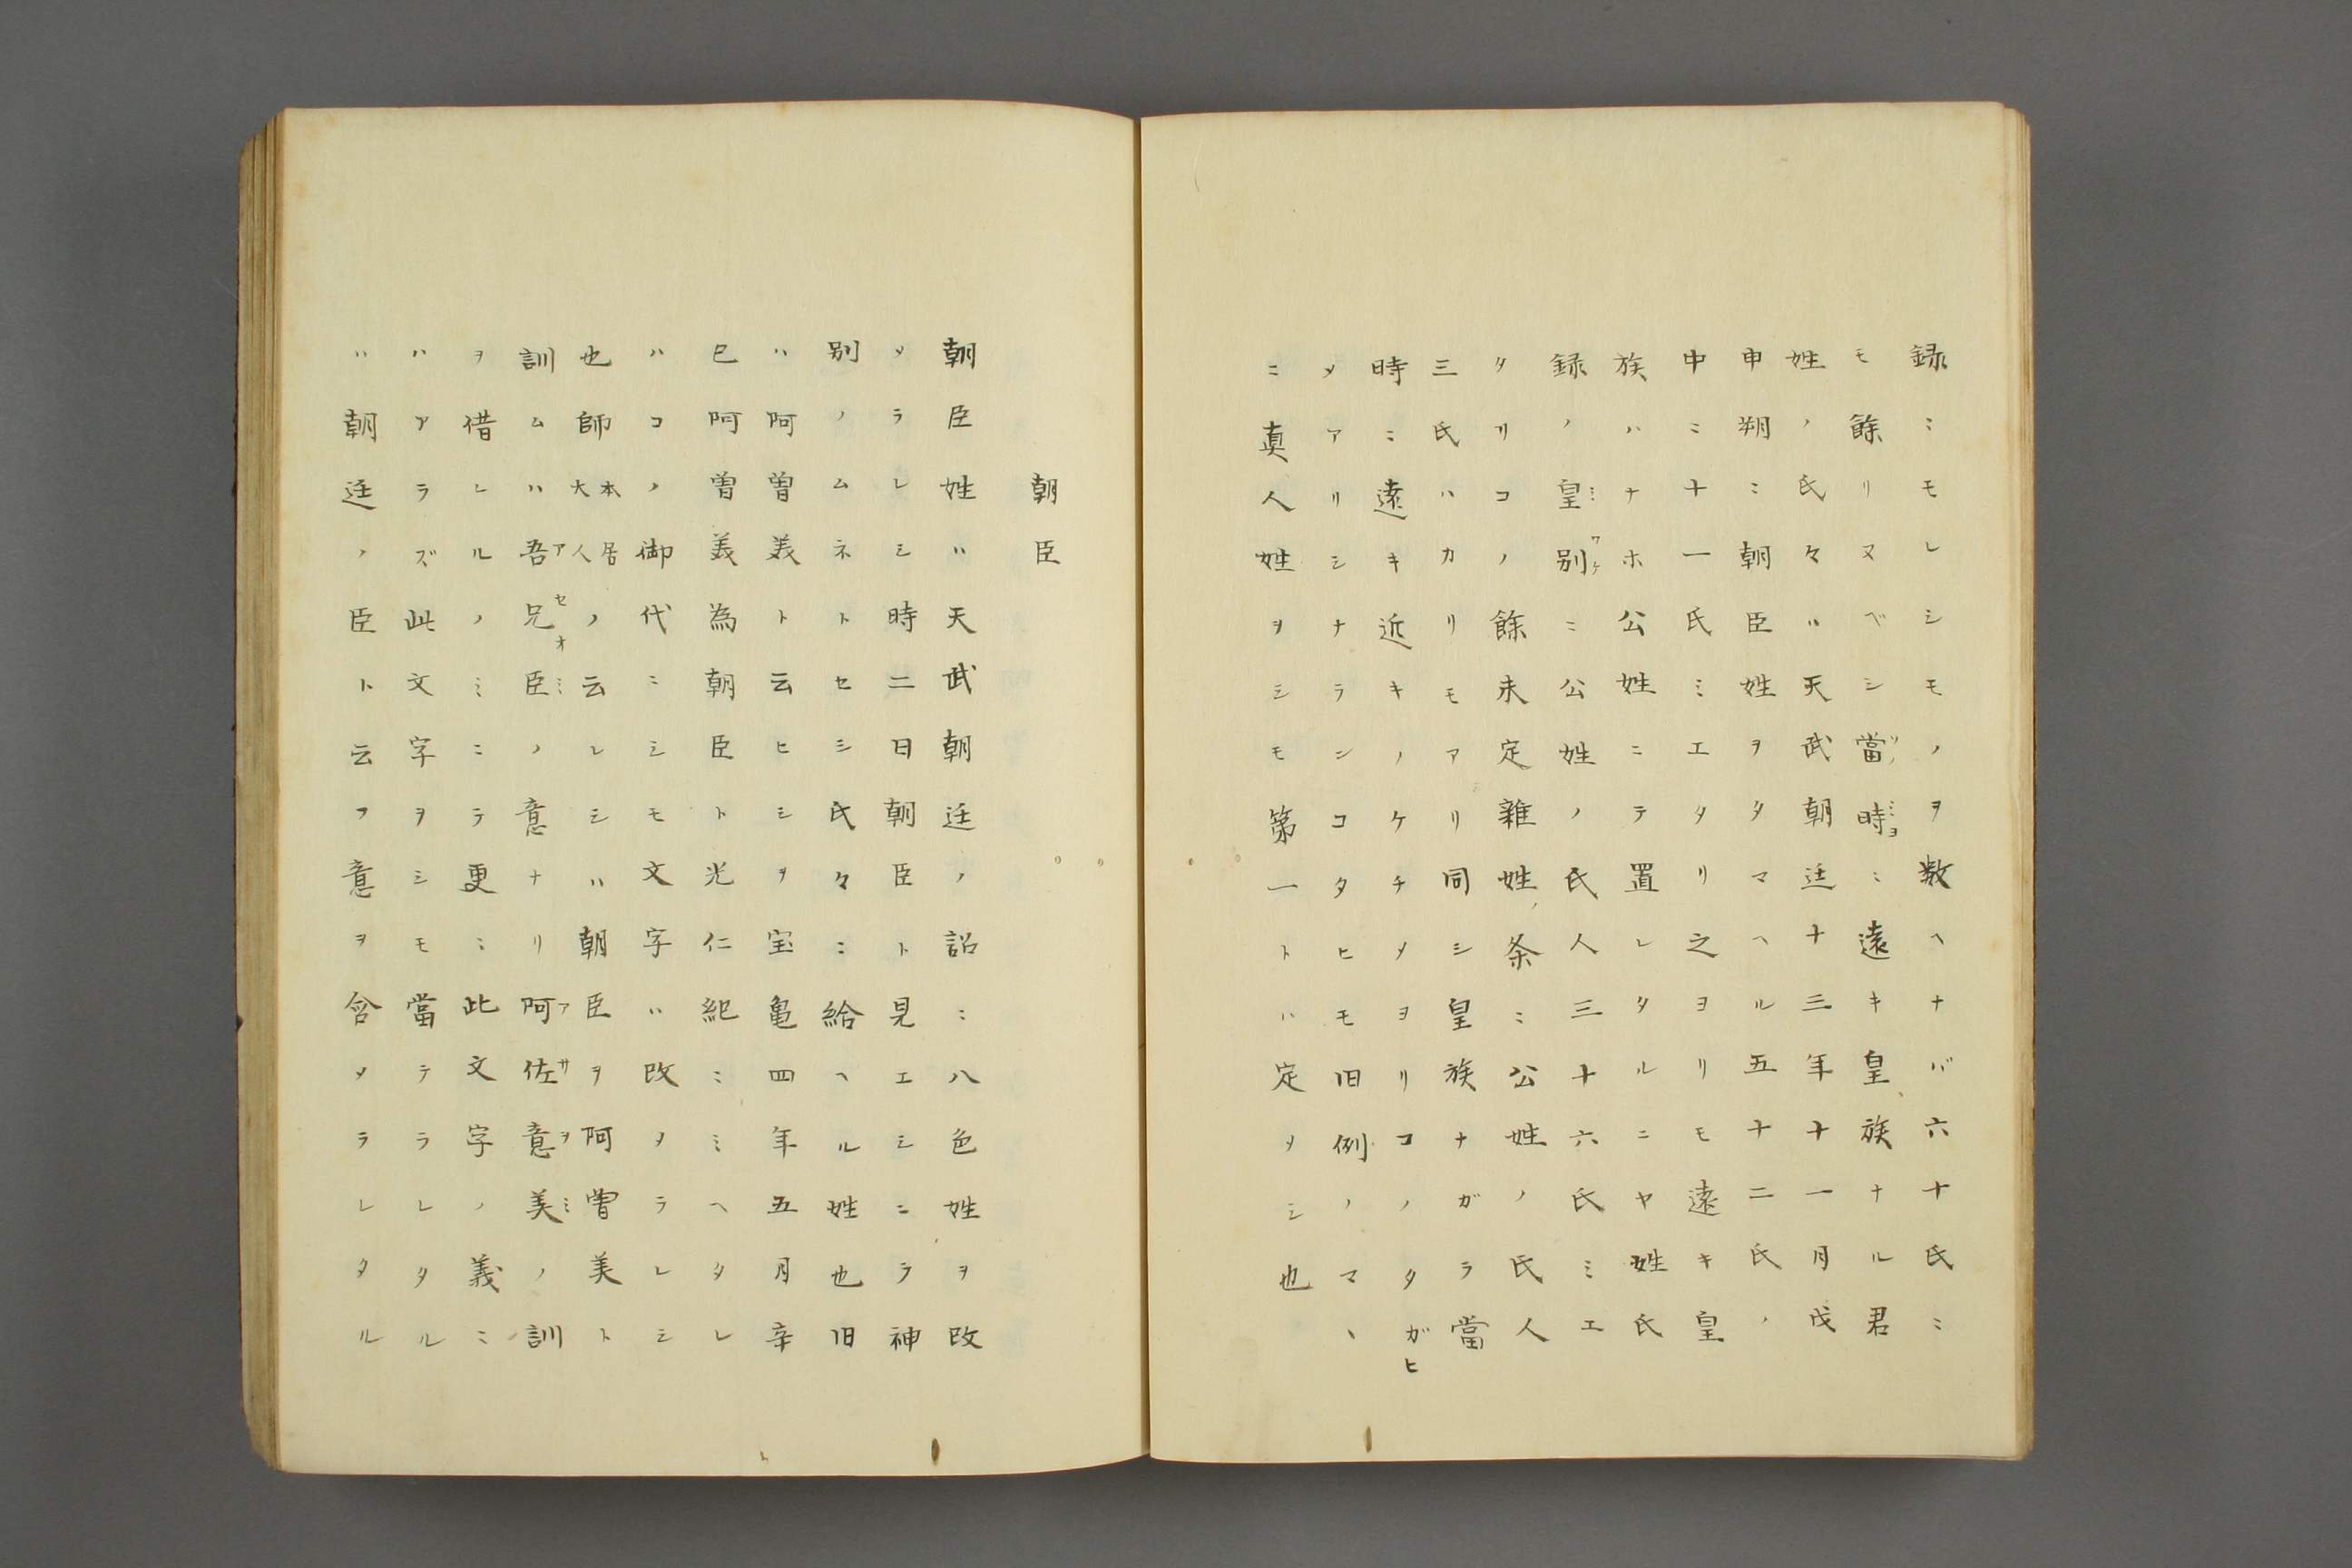 録ニモレシモノヲ数ヘナバ六十氏ニ
モ餘リヌベシ當時ニ遠キ皇族ナル君
姓ノ氏々ハ天武朝廷十三年十一月戊
申朔ニ朝臣姓ヲタマヘル五十二氏ノ
中ニ十一氏ミエタリ之ヨリモ遠キ皇
族ハナホ公姓ニテ置レタルニヤ姓氏
録ノ皇別ニ公姓ノ氏人三十六氏ミエ
タリコノ餘未定雜姓ノ条ニ公姓ノ氏人
三氏ハカリモアリ同シ皇族ナガラ當
時ニ遠キ近キノケチメヲリコノタガヒ
メアリシナラシコタヒモ旧例ノマヽ
ニ真人姓ヲシモ第一トハ定メシ也
朝臣
朝臣姓ハ天武朝廷ノ詔ニ八色姓ヲ改
メラレシ時二日朝臣ト見エシニラ神
別ノムネトセシ氏々ニ給ヘル姓也旧
ハ阿曽美ト云ヒシヲ宝亀四年五月辛
巳阿曽美為朝臣ト光仁紀ニミヘタレ
ハコノ御代ニシモ文字ハ改メラレシ
也師本居大人ノ云レシハ朝臣ヲ阿曽美ト
訓ムハ吾兄臣ノ意ナリ阿佐意美ノ訓
ヲ借レルノミニテ更ニ此文字ノ義ニ
ハアラズ此文字ヲシモ當テラレタル
ハ朝廷ノ臣ト云フ意ヲ含メラレタル